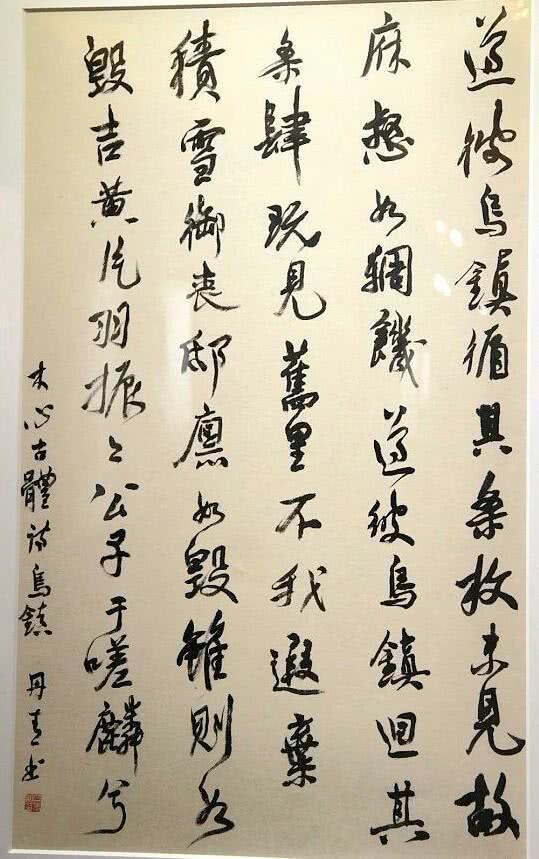 遵彼烏鎮循其条枚未見故
麻惄如輖饑遵彼烏鎮迴其
条肄既見舊里不我遐棄
積雪御喪邸廪如毀雖則如
毀吉黃片羽振々公子于嗟麟兮
木心古體詩烏鎮 丹青書